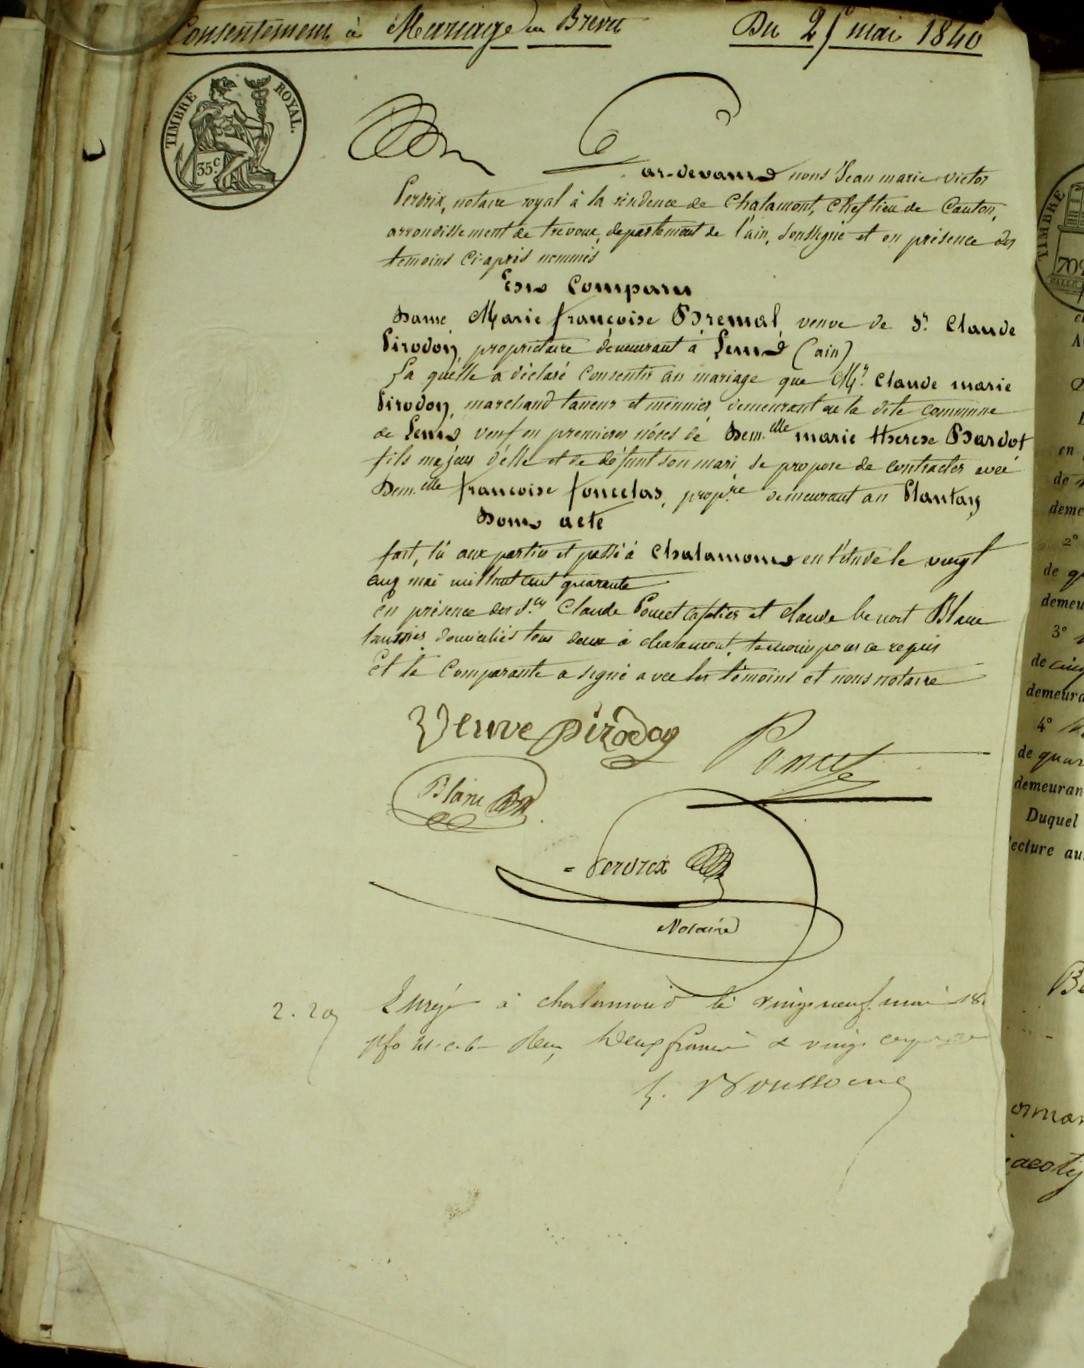 Consentement à Mariage en Brevet Du 25 mai 1840
TIMBRE ROYAL.
35 c
Par-devant nous Jean marie victor
Perdrix, notaire royal à la résidence de Chalamont, Chef lieu de Canton,
arrondissement de trevoux, departement de l'ain, soussigné et en présence des
temoins ci-après nommés
Est Comparu
Dame Marie françoise Bremal, veuve de Sr. Claude
Pirodon, propriétaire demeurant à Lent (ain)
La quelle a déclaré consentir au mariage que Mr. Claude marie
Pirodon, marchand taneur et meunier, demeurant au la dite commune
de Lent veuf en premieres nôces de Dem.elle marie therese Bardot
fils majeur d'elle et de défunt son mari se propose de contracter avec
Dem.elle francoise foncelas, propre. demeurant au Plantay
Dont acte
fait, lû aux parties et passé à Chalamont en l'étude le vingt
cinq mai mil huit cent quarante
En présence des Srs Claude Poncet et Claude benoit Blanc
domiciliés tous deux à chalamont, temoins pour ce requis
Et la Comparante a signé avec les témoins et nous notaire
Veuve pirodon Poncet
Blanc
Perdrix
Notaire
2.20 Enregé à chalamont le vingt neuf mai 18
deux francs & vingt
TIMBRE
70
en
de
deme
2°
de q
demeu
3°
de cinq
demeura
4°
de quar
demeuran
Duquel
lecture au